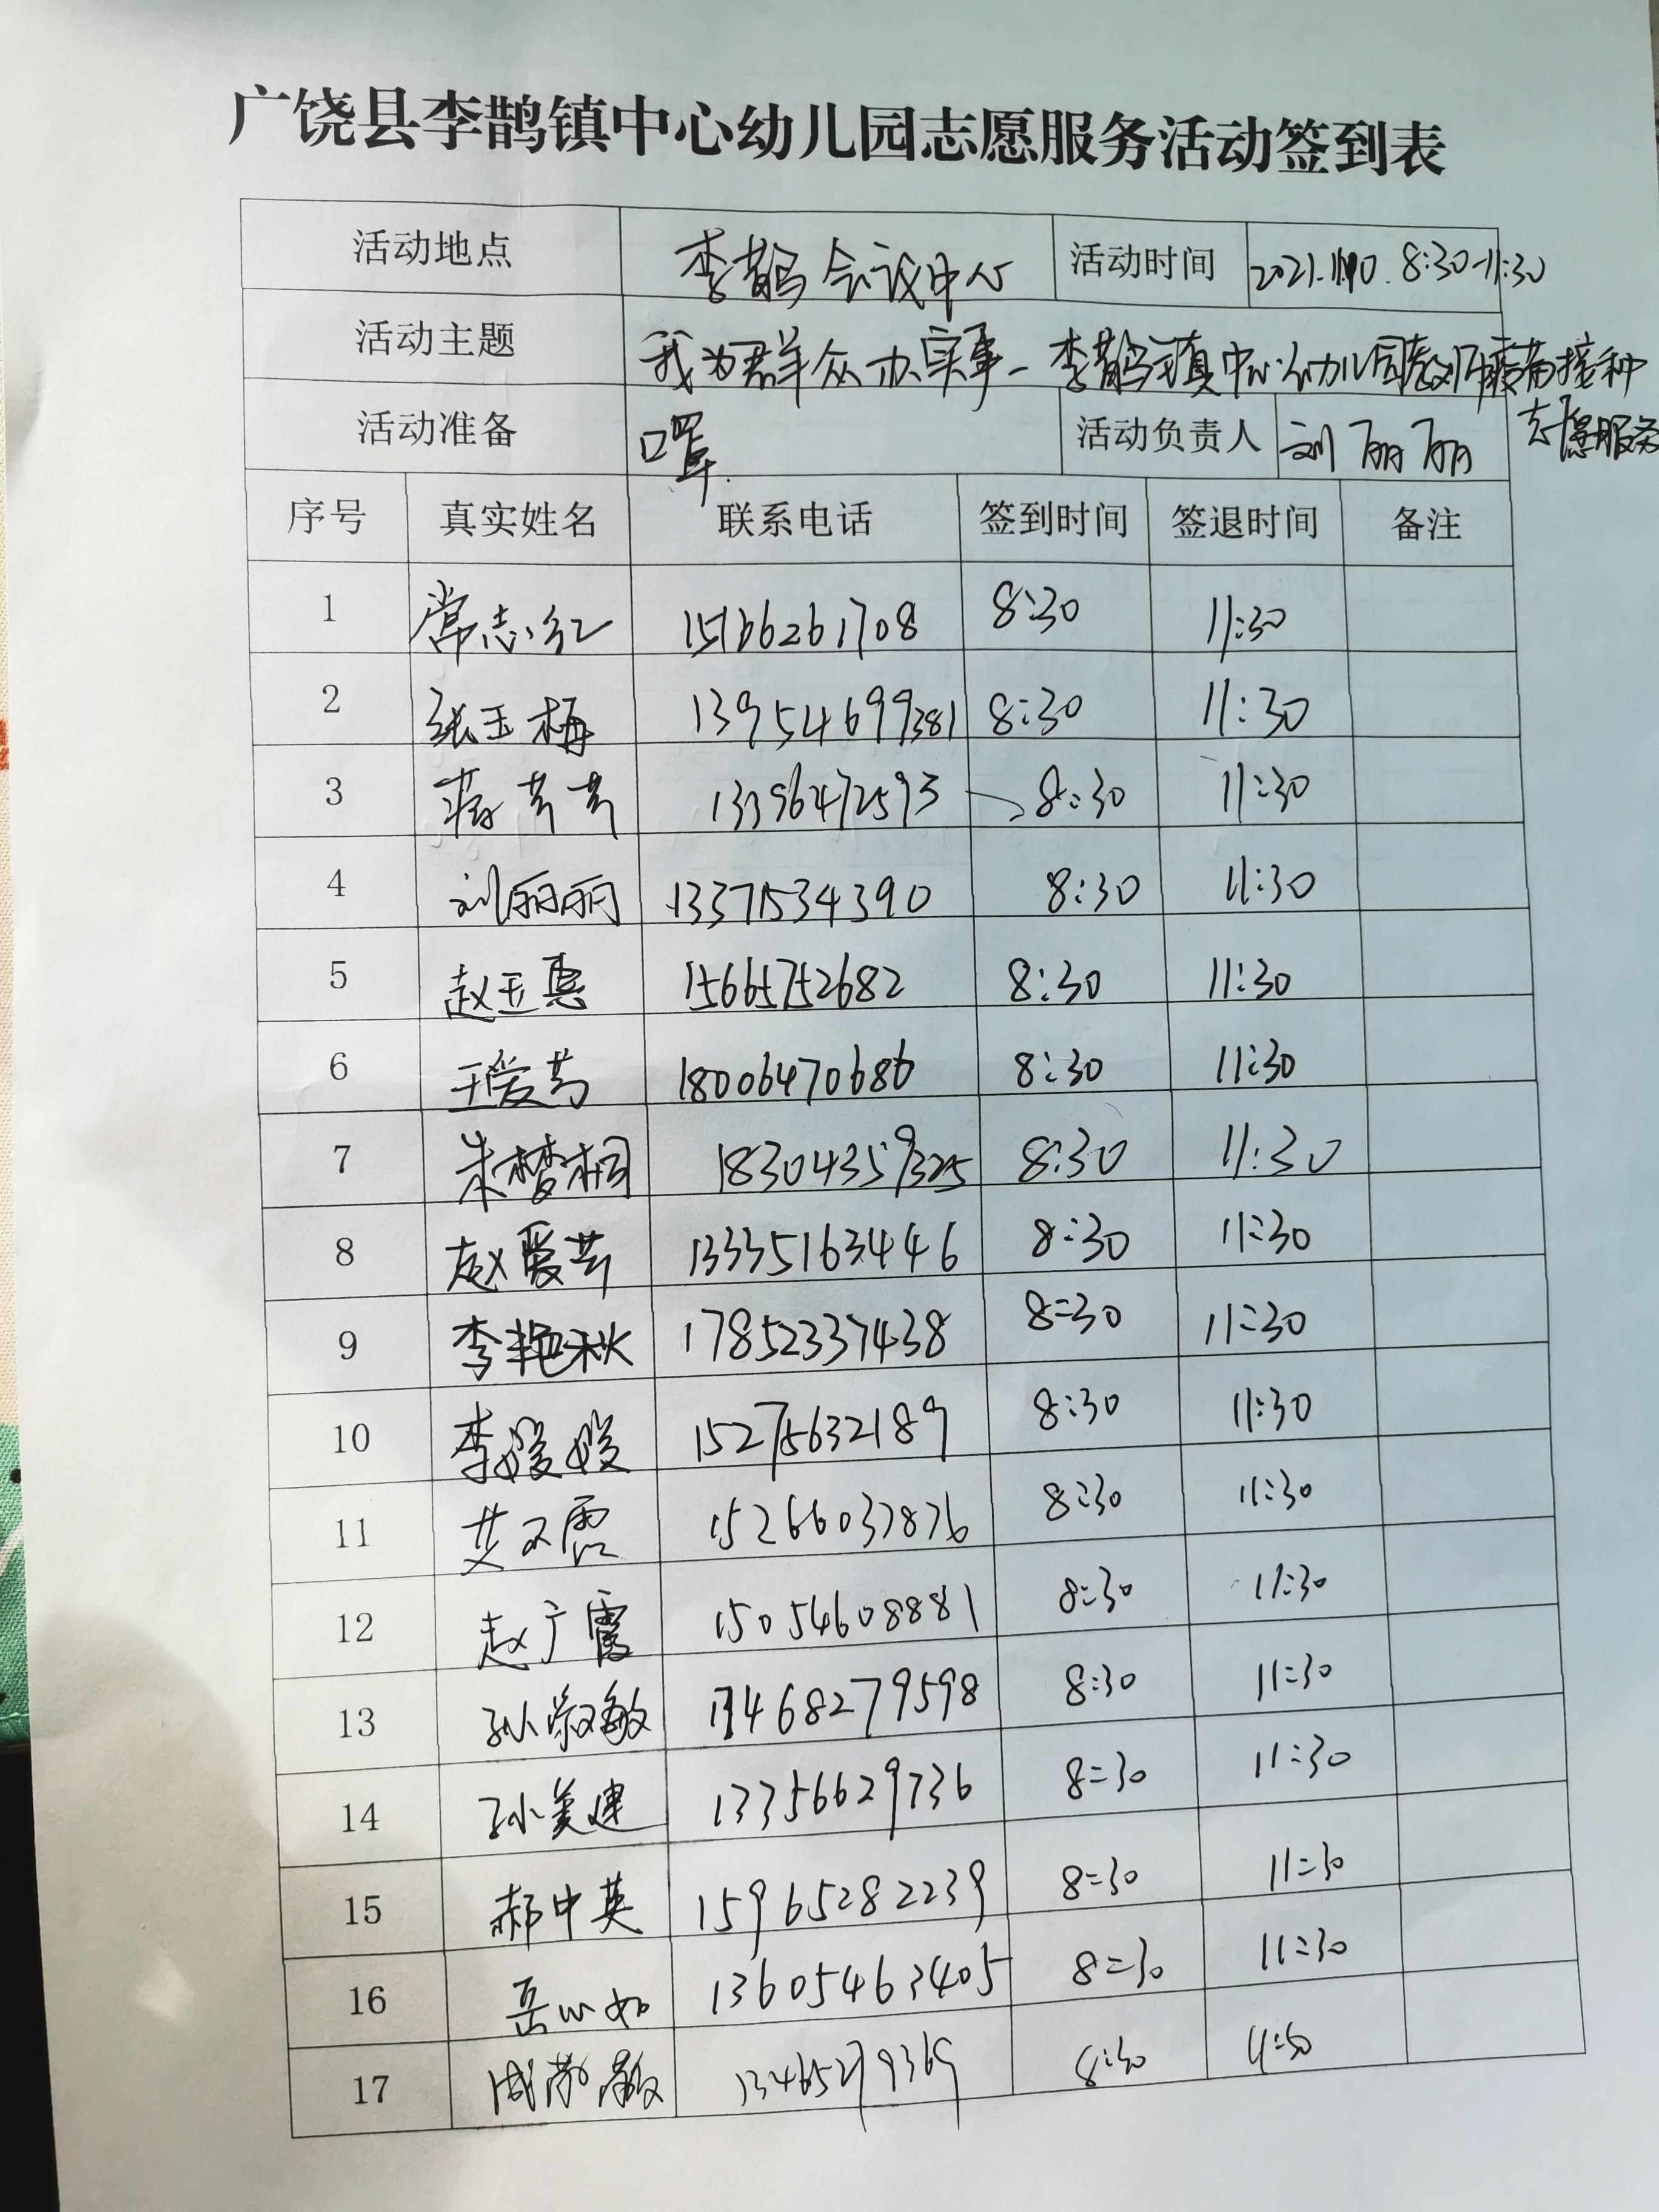 广饶县李鹊镇中心幼儿园志愿服务活动签到表
活动地点 李鹊会议中心 活动时间 2021.11.10. 8:30-11:30
活动主题 我为群众办实事-李鹊镇中心幼儿园教师疫苗接种
志愿服务
活动准备 口罩. 活动负责人 刘丽丽
序号 真实姓名 联系电话 签到时间 签退时间 备注
1 常志红 15166261708 8:30 11:30
2 张玉梅 13954699381 8:30 11:30
3 蒋芳芳 13396472593 8:30 11:30
4 刘丽丽 13371534390 8:30 11:30
5 赵玉惠 15665752682 8:30 11:30
6 王爱芳 18006470686 8:30 11:30
7 朱梦桐 18304359325 8:30 11:30
8 赵爱芳 13335163446 8:30 11:30
9 李艳秋 17852337438 8:30 11:30
10 李媛媛 15275632189 8:30 11:30
11 艾不霞 15266037876 8:30 11:30
12 赵广霞 15054608881 8:30 11:30
13 孙淑敏 13468279598 8:30 11:30
14 孙美建 13356629736 8:30 11:30
15 郝中英 15965282239 8:30 11:30
16 岳心如 13605463405 8:30 11:30
17 13465279369 8:30 11:30